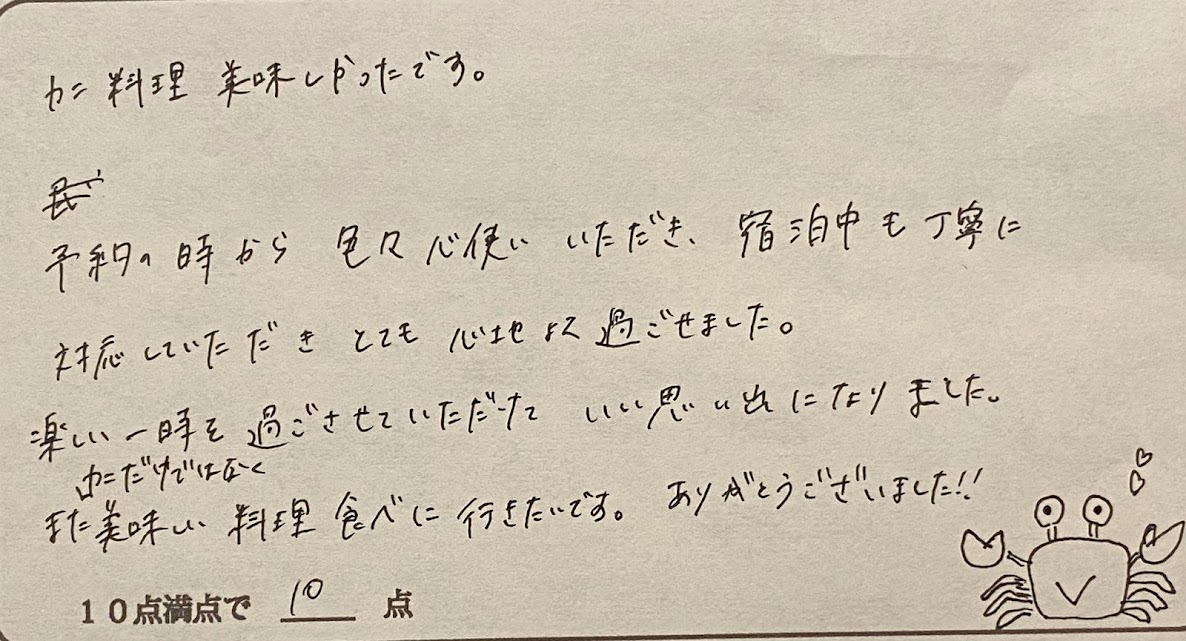 カニ料理 美味しかったです。
予約の時から 色々心使い いただき、宿泊中も丁寧に
対応していただき とても 心地よく過ごせました。
楽しい一時を過ごさせていただけて いい思い出になりました。
カニだけではなく
また美味しい料理食べに行きたいです。ありがとうございました!!
10点満点で 10 点